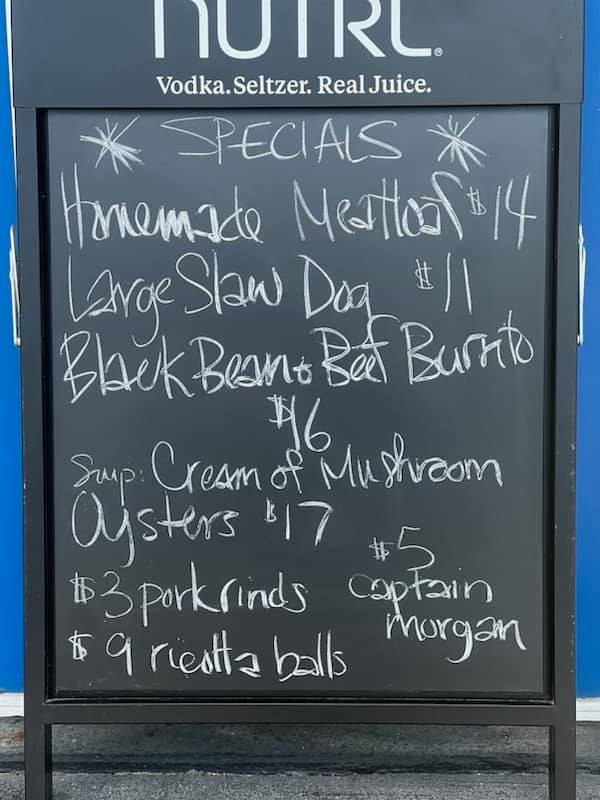 NUTRL®
Vodka. Seltzer. Real Juice.
* SPECIALS *
Homemade Meatloaf $14
Large Slaw Dog $11
Black Bean & Beef Burrito
$16
Soup: Cream of Mushroom
Oysters $17
$3 pork rinds
$9 ricotta balls
$5
captain
morgan